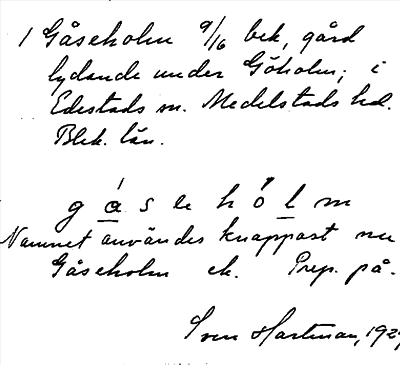 1 Gåseholm 9/16 bek, gård
lydande under Göholm; i
Edestads sn. Medelstads hd.
Blek. län.
gåseholm
Namnet användes knappast nu
Gåseholm ek. Prep. på.
Sven Hartman, 192